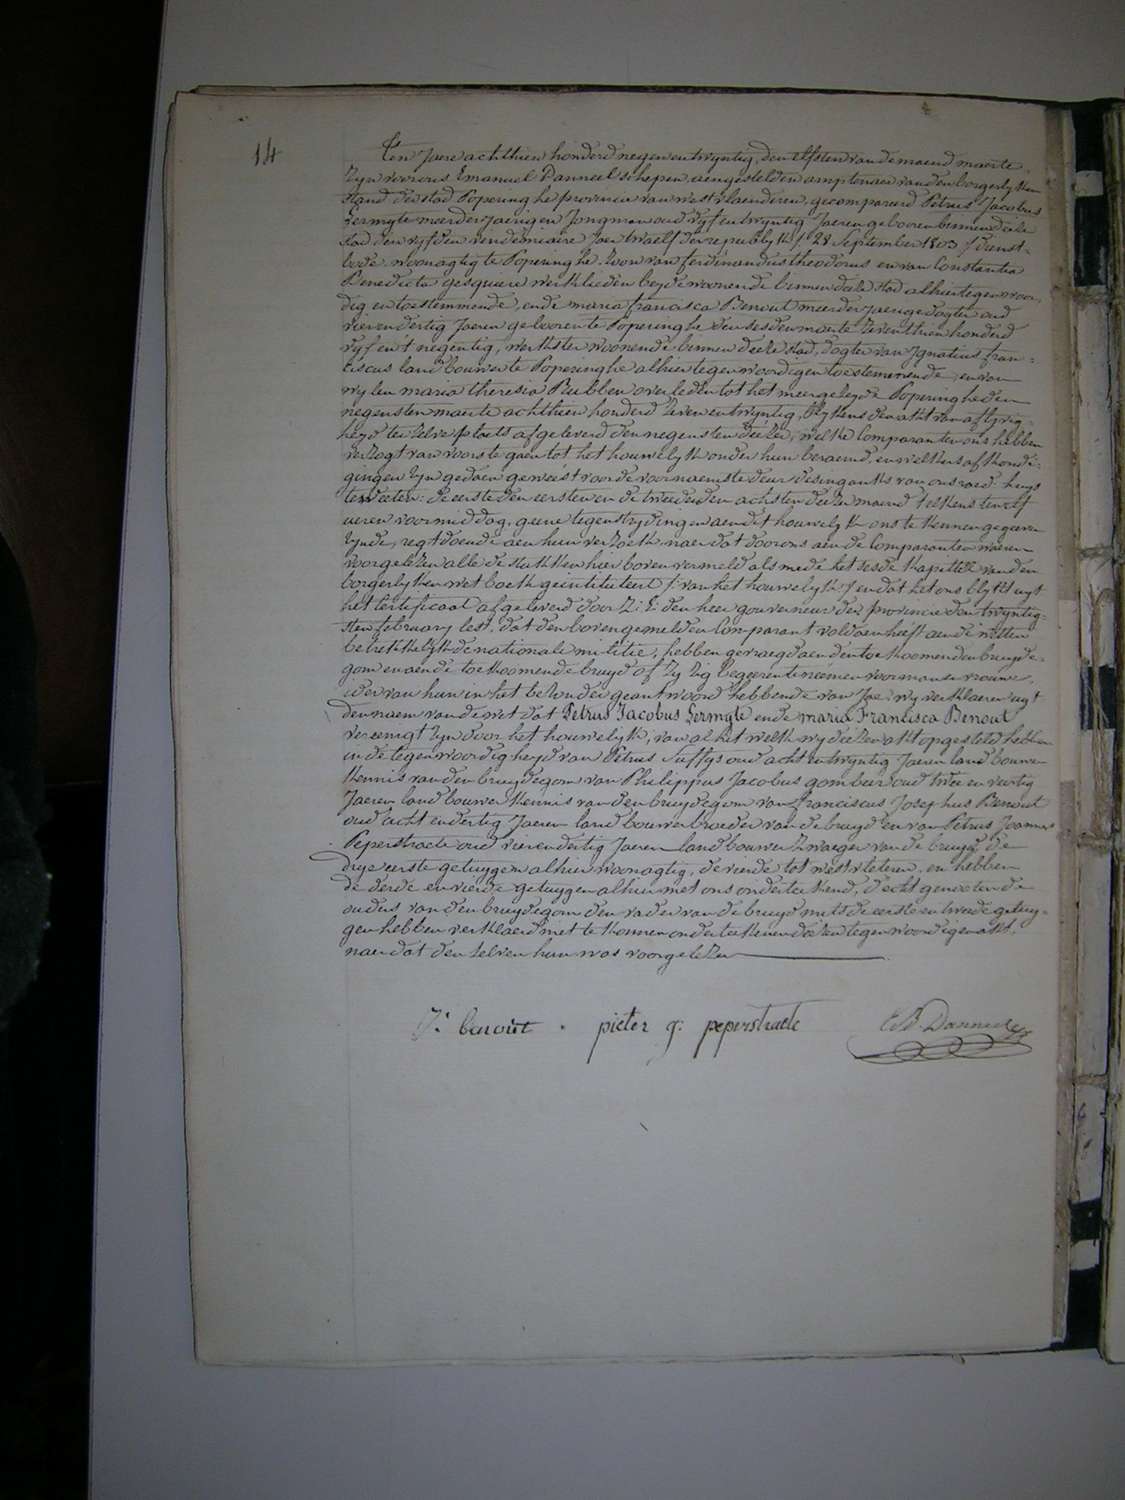 14
Ten Jaere achthien honderd negen en twyntig, den elfsten van de maend maerte
Zyn voor ons Emanuel Danneel schepen aengestelden amptenaer van den borgerlyken
stand der stad Poperinghe provincie van westvlaenderen, gecompareerd Petrus Jacobus
Sermyte meerderjaerigen Jongman oud vyf en twyntig Jaeren gebooren binnen deze
stad den vyfden vendemiaire Jaer twaelf der republyk /: 28 September 1803 :/ dienst-
bode, woonagtig te Poperinghe, zoon van ferdinandus theodorus en van Constantia
Benedicta gesquiere werklieden beyde woonende binnen deeze stad alhier tegenwoor-
dig en toestemmende, ende maria francisca Benout meerderjaerige dogter oud
vierendertig Jaeren gebooren te Poperinghe den sesden maerte zeventhien honderd
vyf en t negentig, werkster woonende binnen deeze stad, dogter van Ignatius fran-
ciscus landbouwer te Poperinghe alhier tegenwoordig en toestemmende, en van
wylen maria theresia Rubben overleden tot het meergeleyde Poperinghe den
negensten maerte achthien honderd zeven en twyntig, blykens den akt van aflyvig-
heyd ter zelve plaets afgeleverd den negensten deézer, welke Comparanten ons hebben
verzogt van voorts te gaen tot het houwelyk onder hun beraemd, en welkers afkondi-
gingen zyn gedaen geweést voor de voornaemste deur des ingangks van ons raed-huys
te weéten: de eerste den eersten en de tweede den achsten deézer maend telkens ten elf
ueren voormiddag, geene tegenstrydingen aen dit houwelyk ons te kennen gegeéven
zynde, regt doende aen hun verzoek, naer dat door ons aen de Comparanten waeren
voorgelezen alle de stukken hier boven vermeld als mede het sesde kapittel van den
borgerlyken wet boek geintituleert /: van het houwelyk :/ en dat het ons blykt uyt
het Certificaet afgeleverd door Z: E: den heer gouverneur der provincie den twyntig-
sten february lest, dat den boven gemelden Comparant voldaen heeft aen de wetten
betrekkelyk de nationale militie, hebben gevraegd aen den toekoomenden bruyde-
gom en aen de toekoomende bruyd of zy zig begeerente neémen voor man en vrouwe,
ider van hun in het bezonder geantwoord hebbende van Jae: wy verklaeren uyt
den naem van de wet dat Petrus Jacobus Sermyte ende maria Francisca Benout
vereenigt zyn door het houwelyk, van al het welk wy deézen akt opgesteld hebben
in de tegenwoordigheyd van Petrus Suffys oud acht en twyntig Jaeren landbouwer
kennis van den bruydegom van Philippus Jacobus gombeir oud twee en veertig
Jaeren landbouwer kennis van den bruydegom van franciscus Josephus Benout
oud acht en dertig Jaeren landbouwer broeder van de bruyd en van Petrus Joannes
Peperstraete oud vierendertig Jaeren landbouwer zwaeger van de bruyd de
drye eerste getuygen alhier woonagtig, de vierde tot westvleteren, en hebben
de derde en vierde getuygen alhier met ons onderteekend, d'echtgenooten de
ouders van den bruydegom den vader van de bruyd mits de eerste en tweede getuy-
gen hebben verklaerd niet te konnen onderteekenen deézen tegenwoordigen akt,
naer dat den zelven hun was voorgelezen
f: benout . pieter j: peperstraete EB. Danneel